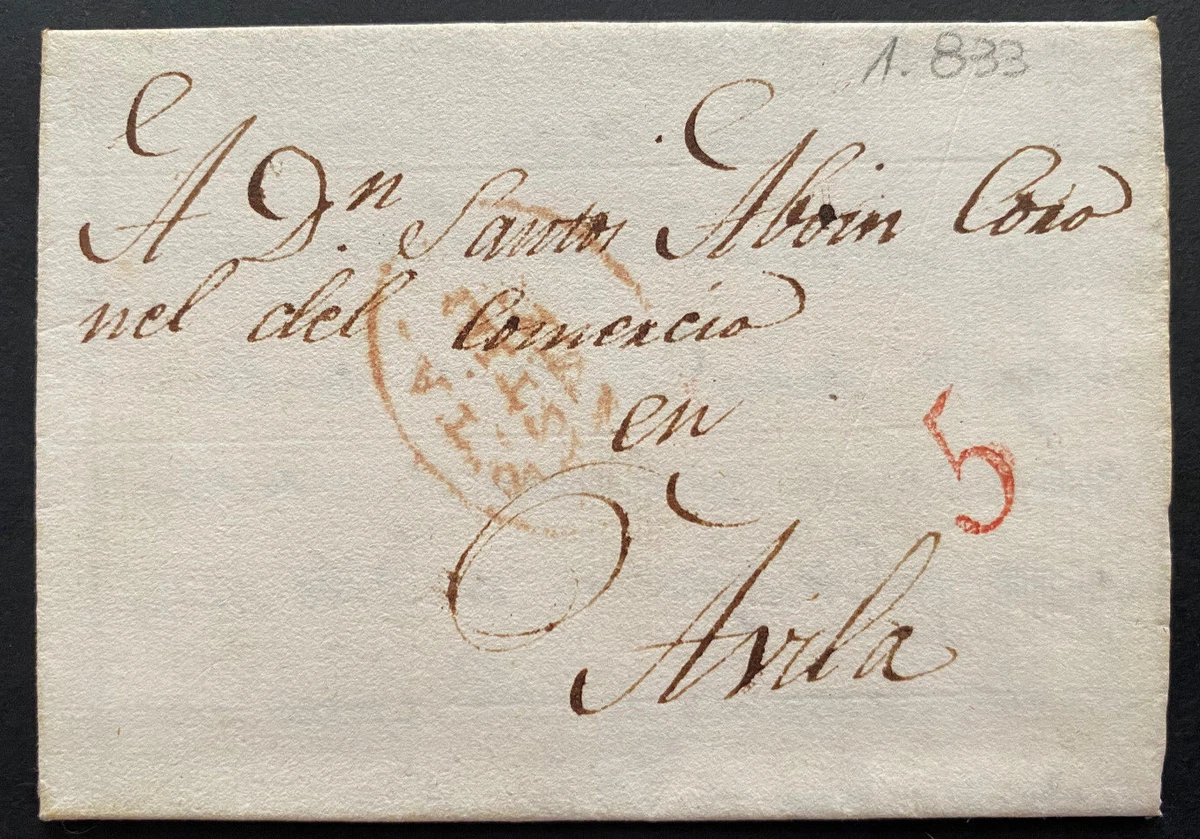 1.833
A D.n Santos Aboin Coro
nel del Comercio
en
5
Avila